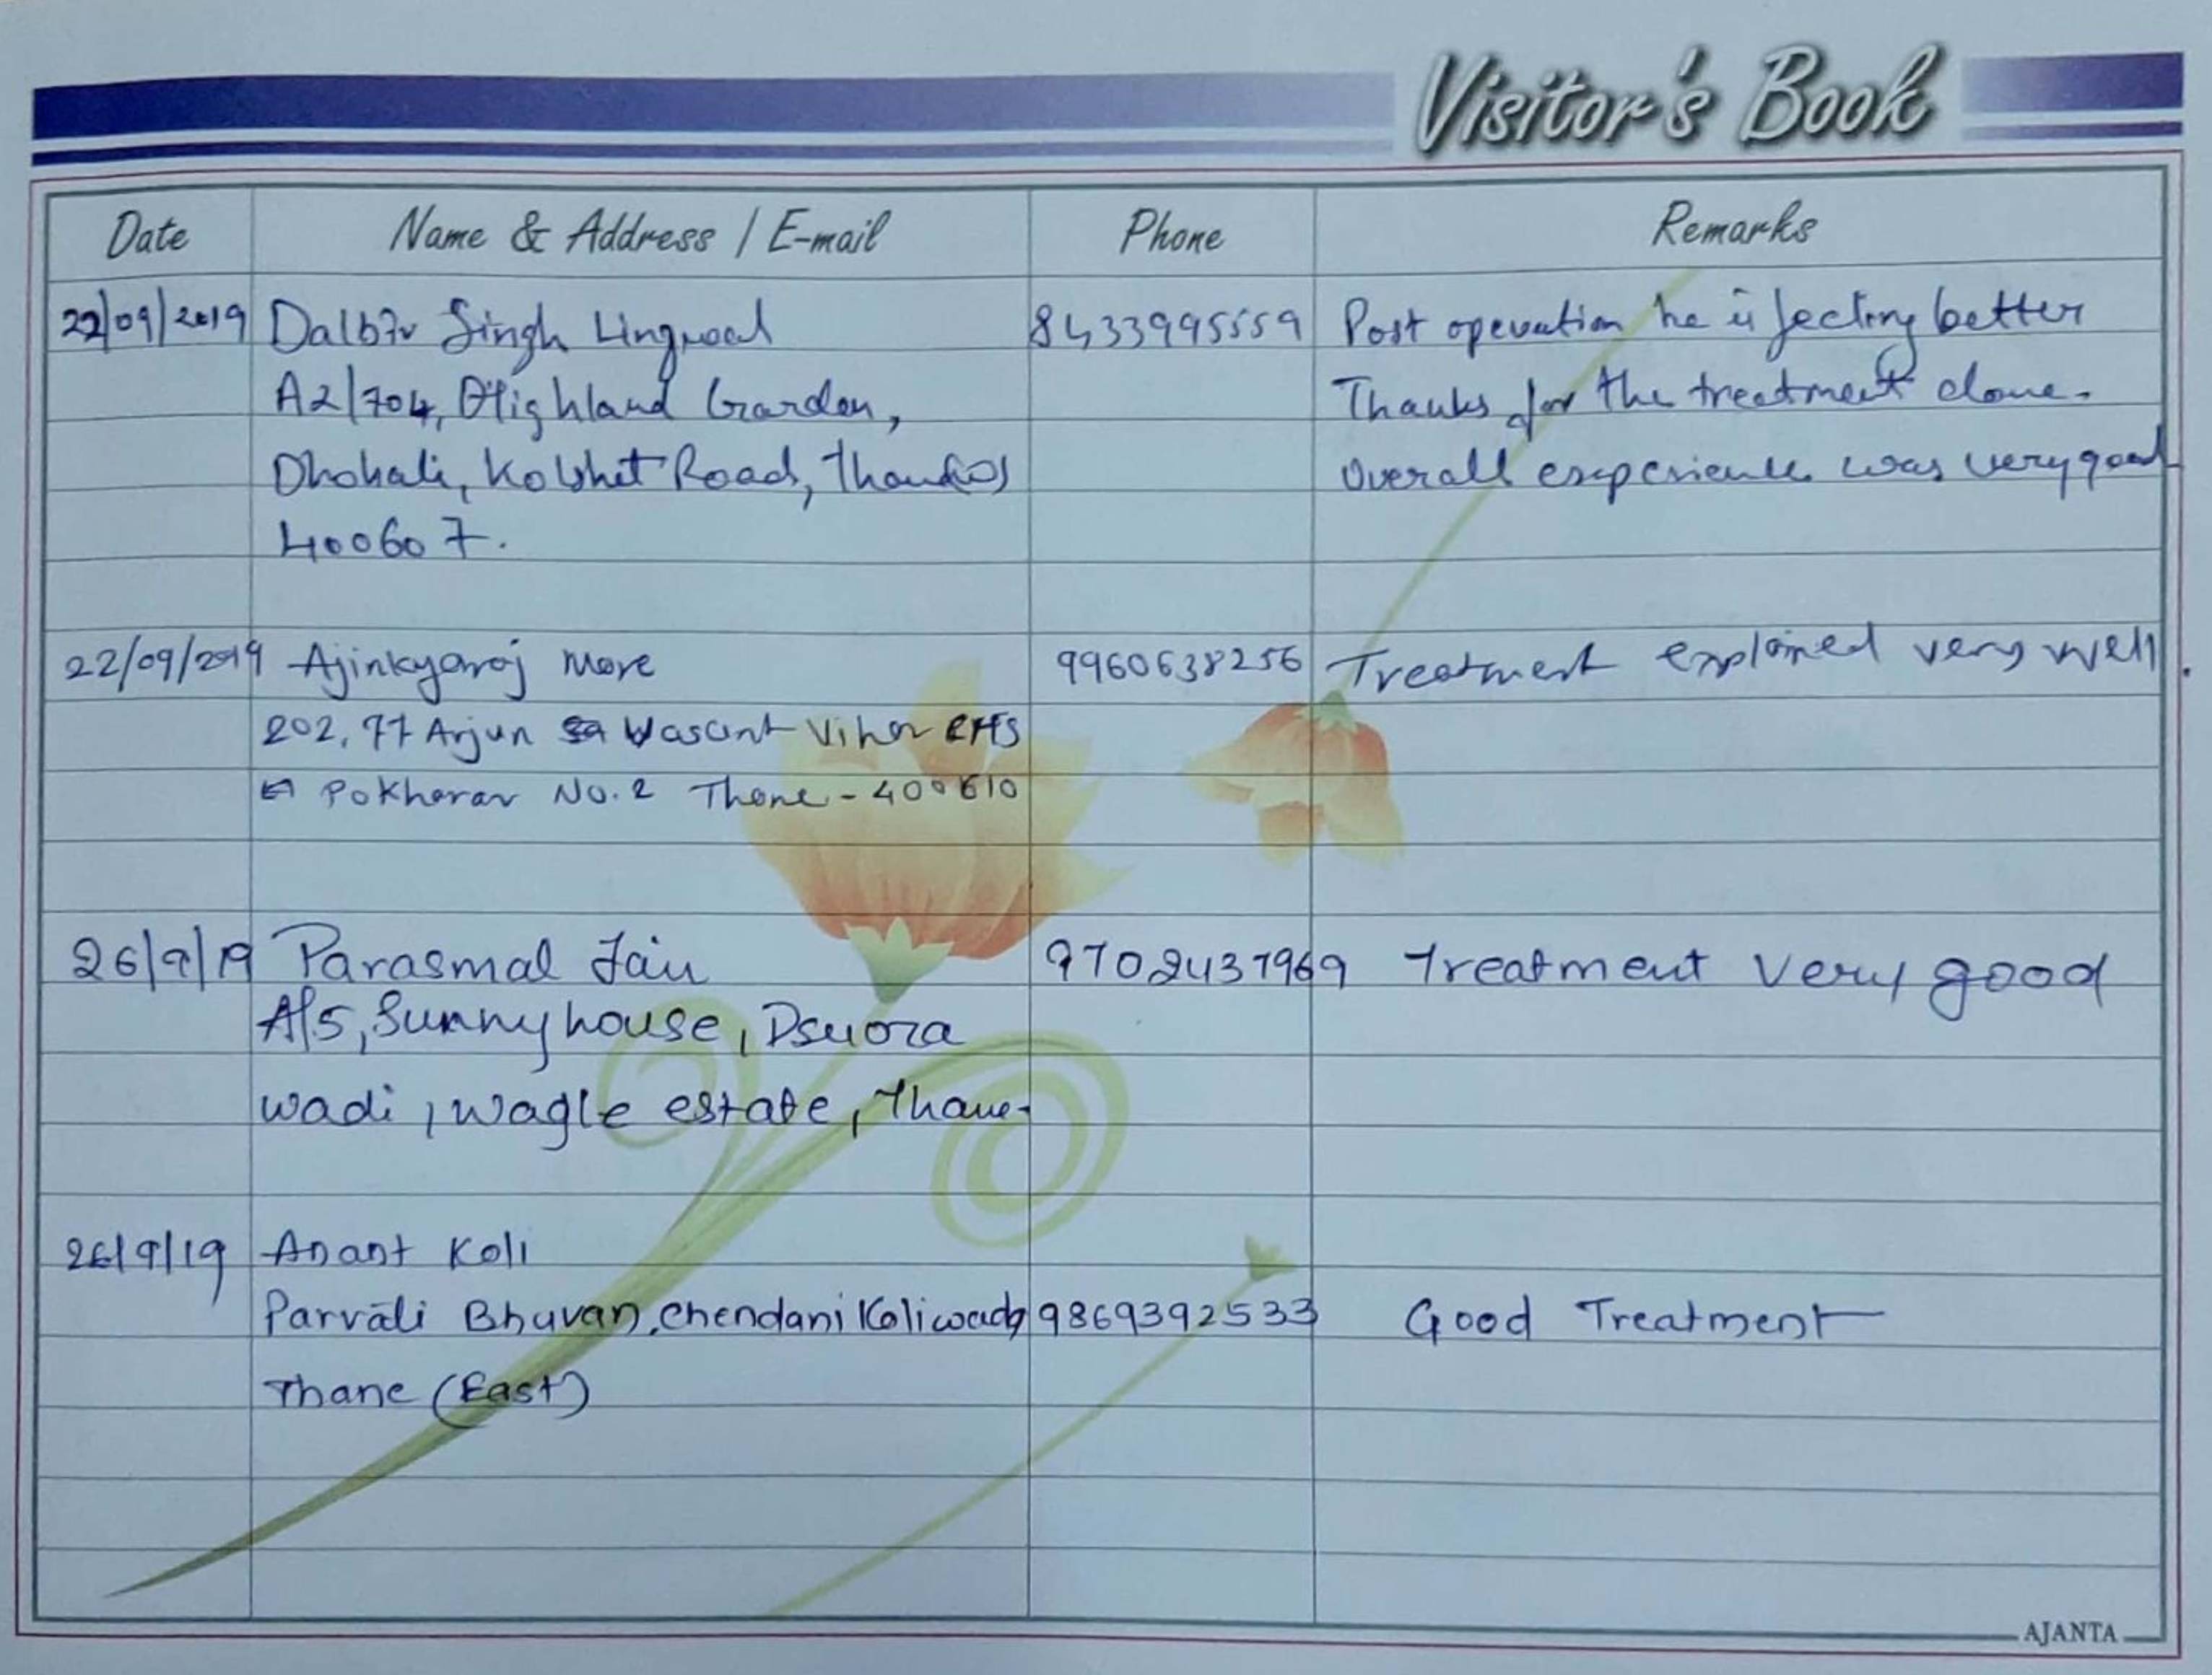 Visitor's Book
Date Name & Address / E-mail Phone Remarks
22/09/2019 Dalbir Singh Lingwal 8433995559 Post operation he is feeling better
A2/704, Highland Garden, Thanks for the treatment done.
Dhokali, Kolshet Road, Overall experience was very good
400607.
22/09/2019 Ajinkyaraj More 9960638256 Treatment explained very well.
202, 77 Arjun Vasant Vihar CHS
Pokharan No. 2 Thane - 400610
26/9/19 Parasmal Jain 9702437969 Treatment very good
A/5, Sunny house,
wadi, wagle estate, Thane-
26/9/19 Anant Koli
Parvati Bhuvan, Chendani Koliwada 9869392533 Good Treatment
Thane (East)
AJANTA